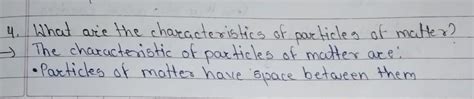 4. What are the characteristics of particles of matter?
→ The characteristic of particles of matter are:
• Particles of matter have space between them